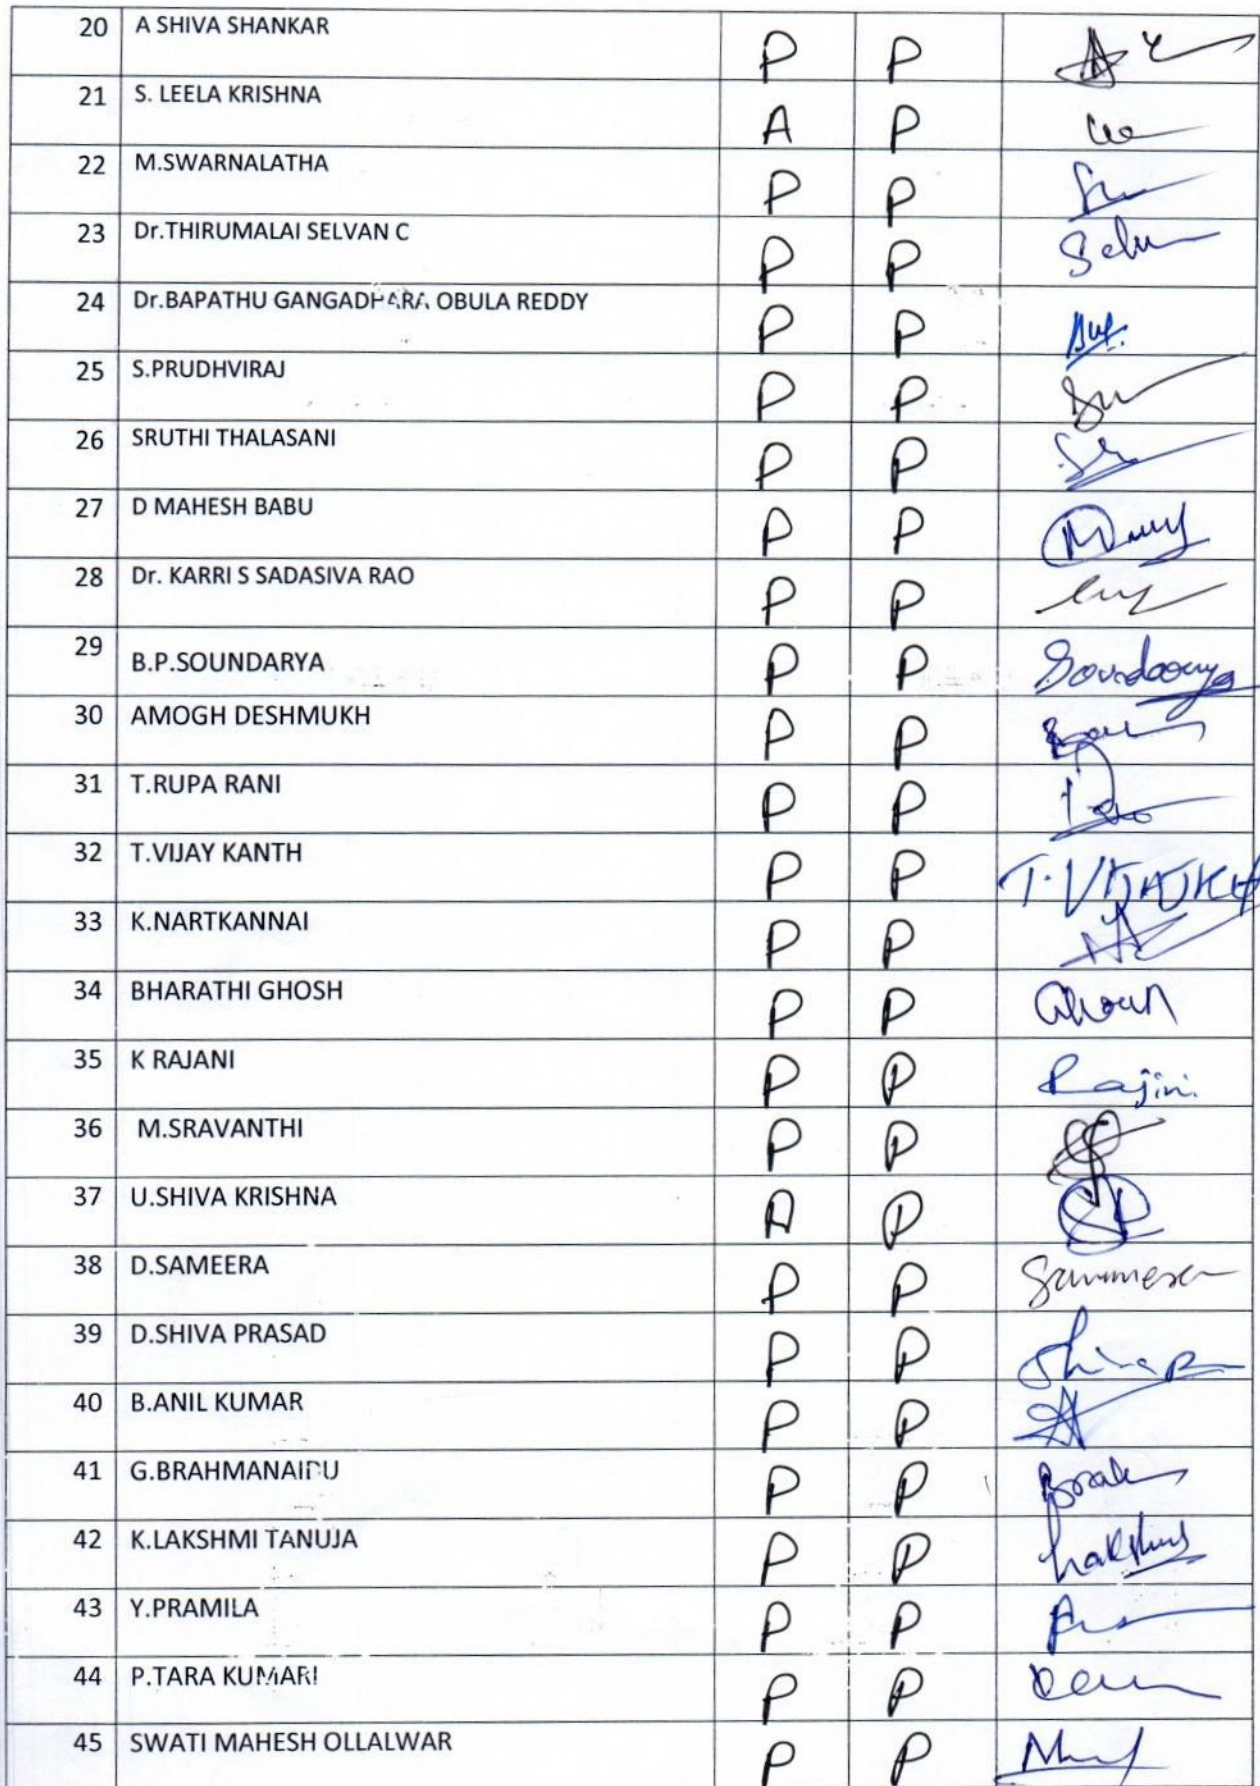 20 A SHIVA SHANKAR P P
21 S. LEELA KRISHNA A P
22 M.SWARNALATHA P P
23 Dr.THIRUMALAI SELVAN C P P Selv
24 Dr.BAPATHU GANGADHARA OBULA REDDY P P
25 S.PRUDHVIRAJ P P
26 SRUTHI THALASANI P P
27 D MAHESH BABU P P
28 Dr. KARRI S SADASIVA RAO P P
29 B.P.SOUNDARYA P P Soundarya
30 AMOGH DESHMUKH P P
31 T.RUPA RANI P P
32 T.VIJAY KANTH P P
33 K.NARTKANNAI P P
34 BHARATHI GHOSH P P
35 K RAJANI P P Rajini.
36 M.SRAVANTHI P P
37 U.SHIVA KRISHNA A P
38 D.SAMEERA P P
39 D.SHIVA PRASAD P P
40 B.ANIL KUMAR P P
41 G.BRAHMANAIDU P P
42 K.LAKSHMI TANUJA P P
43 Y.PRAMILA P P
44 P.TARA KUMARI P P
45 SWATI MAHESH OLLALWAR P P